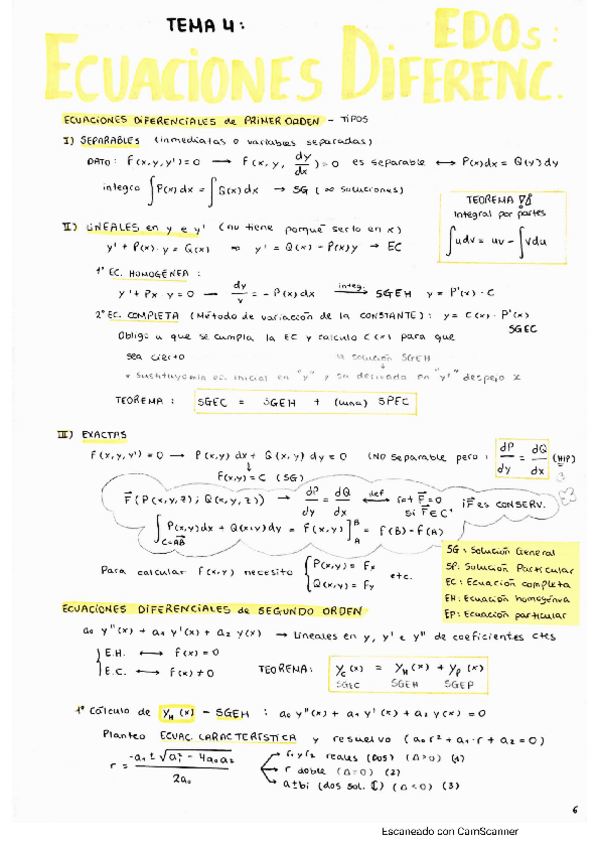 TEMA 4:
EDOs:
ECUACIONES DIFERENC.
ECUACIONES DIFERENCIALES de PRIMER ORDEN - TIPOS
I) SEPARABLES (inmediatas o variables separadas)
DATO: F(x,y,y')=0 → F(x, y, dy/dx)=0 es separable ↔ P(x)dx = Q(y)dy
integro ∫P(x)dx = ∫Q(x)dx → SG (∞ soluciones)
TEOREMA
Integral por partes
∫udv = uv - ∫vdu
II) LINEALES en y e y' (no tiene porqué serlo en x)
y' + P(x)·y = Q(x) ⇒ y' = Q(x) - P(x)y → EC
1º EC. HOMOGÉNEA:
y' + Px·y = 0 → dy/y = -P(x)dx integ. → SGEH y = P'(x)·C
2º EC. COMPLETA (Método de variación de la CONSTANTE): y = C(x)·P'(x)
SGEC
Obligo a que se cumpla la EC y calculo C(x) para que
sea cierto
la solución SGEH
* sustituyo en ec. inicial en "y" y su derivada en "y'" despejo
TEOREMA: SGEC = SGEH + (una) SPEC
III) EXACTAS
F(x,y,y')=0 → P(x,y)dx + Q(x,y)dy = 0 (NO separable pero: dP/dy = dQ/dx (HIP)
F(x,y) = C (SG)
F⃗(P(x,y,z); Q(x,y,z)) → dP/dy = dQ/dx ⟷def rot F⃗=0 si F⃗∈C' ¡F⃗ es CONSERV.
∫C=AB P(x,y)dx + Q(x,y)dy = F(x,y)]ᴮ_A = F(B) - F(A)
Para calcular F(x,y) necesito {P(x,y) = Fx
Q(x,y) = Fy etc.
SG: Solución General
SP: Solución Particular
EC: Ecuación completa
EH: Ecuación homogénea
EP: Ecuación particular
ECUACIONES DIFERENCIALES de SEGUNDO ORDEN
a₀y''(x) + a₁y'(x) + a₂y(x) → Lineales en y, y' e y'' de coeficientes ctes
E.H. ↔ F(x) = 0
E.C. ↔ F(x) ≠ 0
TEOREMA: yc(x) = yH(x) + yP(x)
SGEC SGEH SGEP
1º Cálculo de yH(x) - SGEH: a₀y''(x) + a₁y'(x) + a₂y(x) = 0
Planteo ECUAC. CARACTERÍSTICA y resuelvo (a₀r² + a₁·r + a₂ = 0)
r = (-a₁ ± √(a₁² - 4a₀a₂))/2a₀
r₁ y r₂ reales (DOS) (Δ>0) (1)
r doble (Δ=0) (2)
a±bi (dos sol. ℂ) (Δ<0) (3)
6
Escaneado con CamScanner